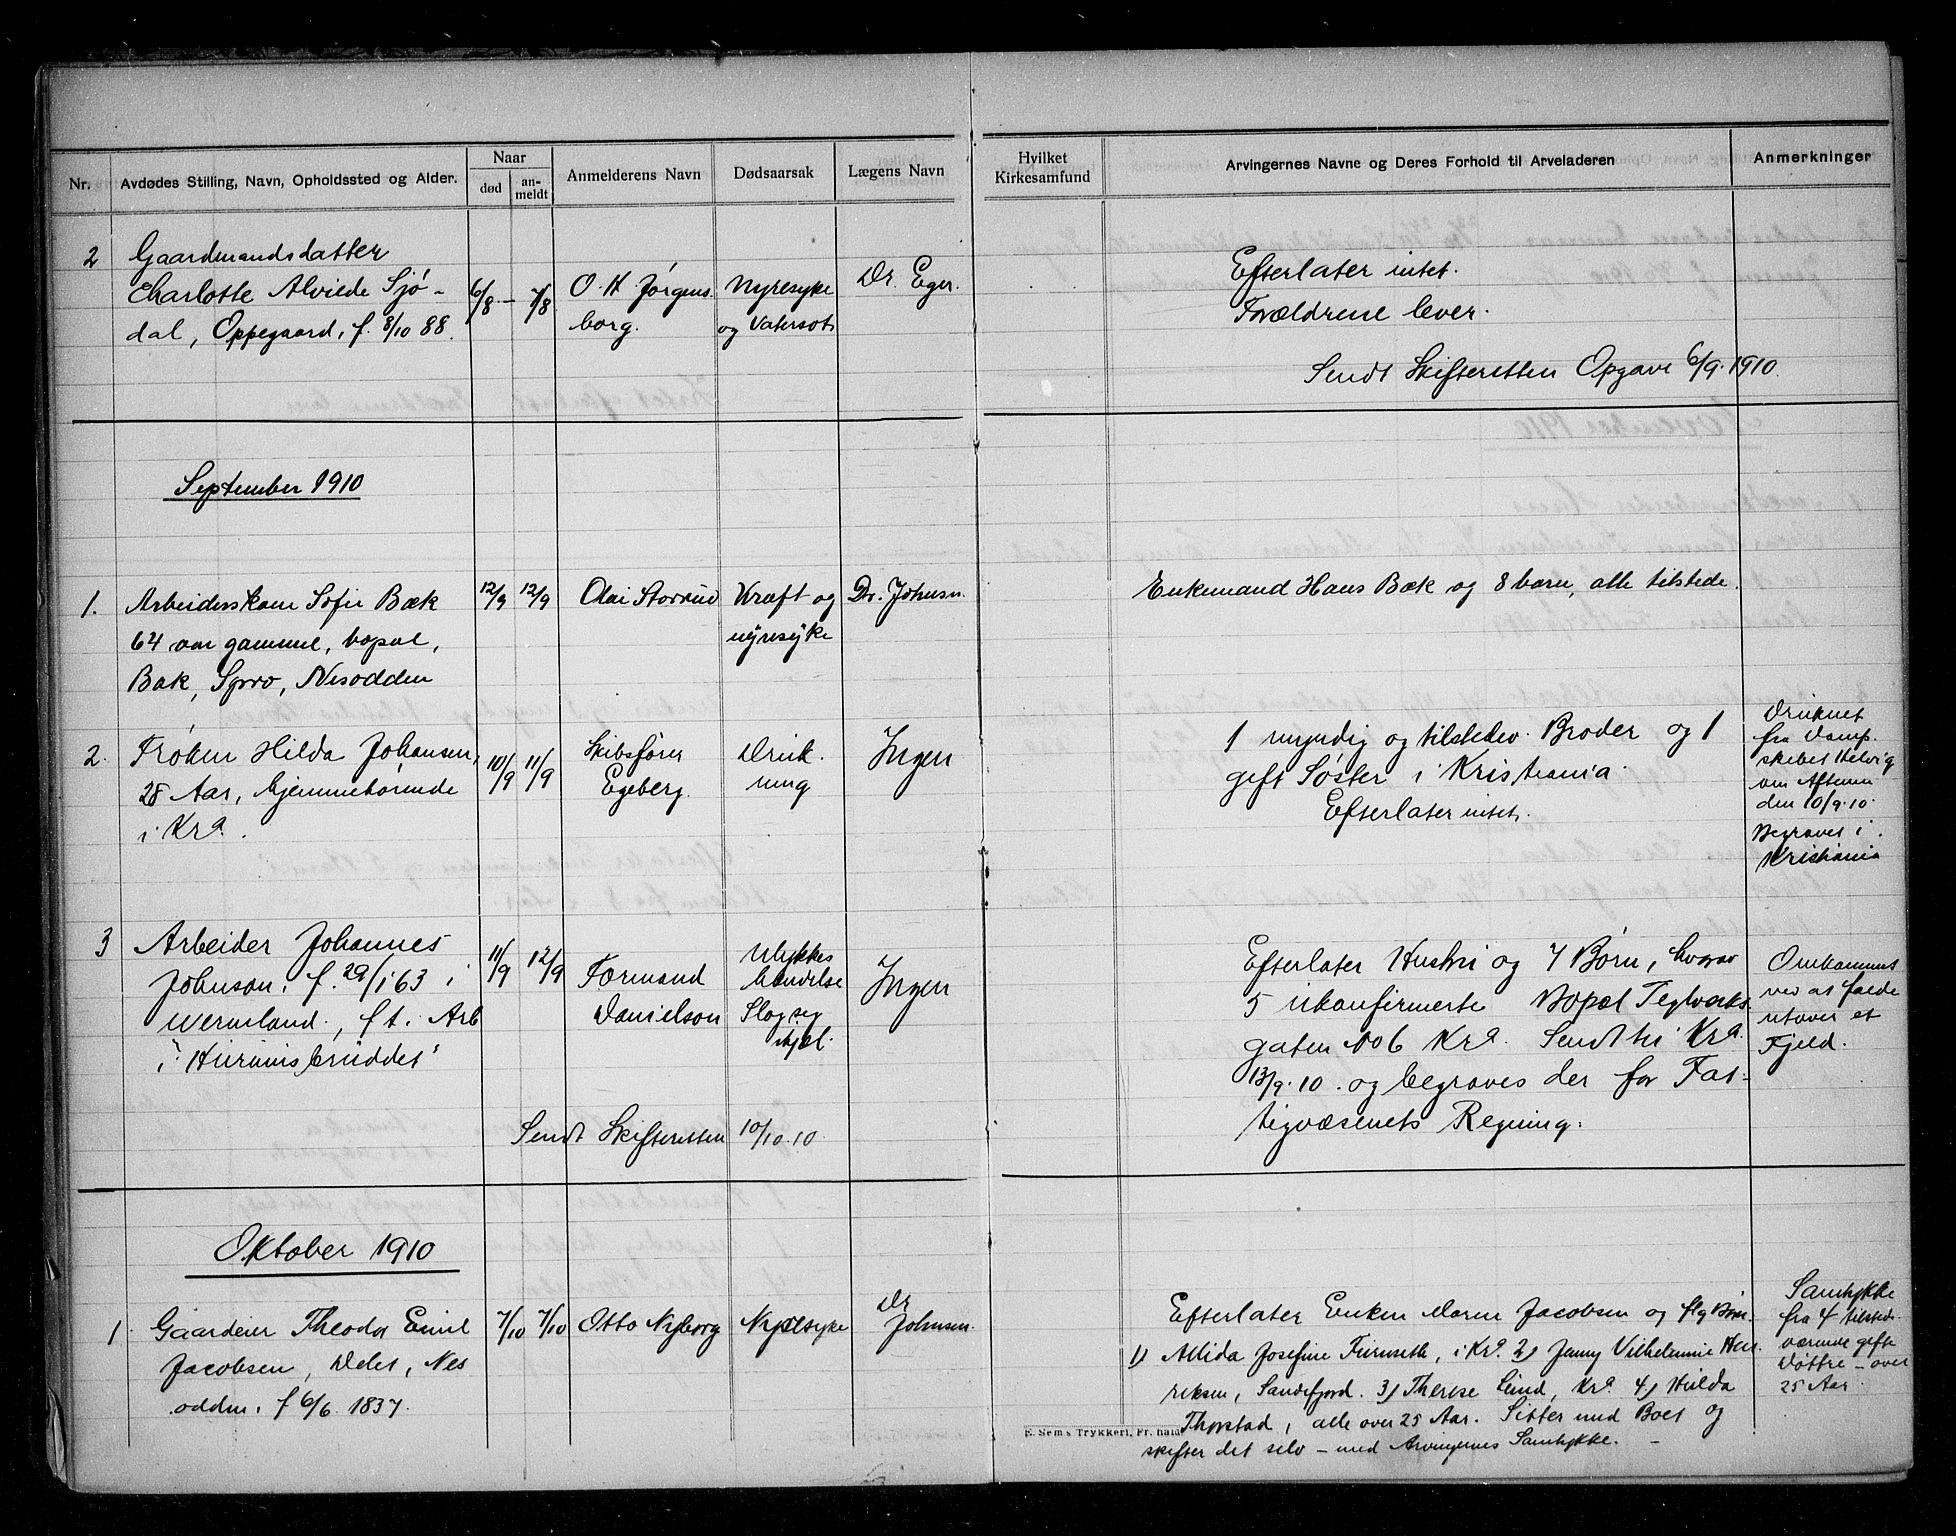 Nr.
Avdødes Stilling, Navn, Opholdssted og Alder.
Naar
død
an-
meldt
Anmelderens Navn
Dødsaarsak
Lægens Navn
Hvilket
Kirkesamfund
Arvingernes Navne og Deres Forhold til Arveladeren
Anmerkninger
2 Gaardmandsdatter
Charlotte Alvilde Sjø-
dal, Oppegaard, f. 8/10 88.
6/8 — 7/8
O. H. Jørgens
borg.
Nyresyke
og Vatersot
Dr. Eger.
Efterlater intet.
Forældrene lever.
Sendt Skifteretten Opgave 6/9. 1910
September 1910
1. Arbeiderskone Sofie Bæk
64 aar gammel, bopæl,
Bæk, Spro, Nesodden
12/9 12/9
Olai Storrud
Kræft og
nyresyke
Dr. Johnsn.
Enkemand Hans Bæk og 8 barn, alle tilstede.
2. Frøken Hilda Johansen,
28 Aar, hjemmehørende
i Kra.
10/9 11/9
Skibsfører
Egeberg.
Druk-
ning
Ingen
1 myndig og tilstedev. Broder og 1
gift Søster i Kristiania.
Efterlater intet.
Druknet
fra Damp-
skibet Helvig
om Aftenen
den 10/9.10.
Begravet i
Kristiania
3 Arbeider Johannes
Johnson, f. 29/1 63 i
Wermland., f. t. Arb
i "Hurums
11/9 12/9
Formand
Danielson
Ulykkes
hændelse
Slog seg
ihjel.
Ingen
Efterlater Hustru og 7 Børn, hvorav
5 ukonfirmerte Bopæl Teglverks
gaten No 6 Kra. Sendt til Kra.
13/9.10. og begraves der for Fat-
tigvæsenets Regning.
Omkommet
ved at falde
utover et
Fjeld.
Sendt Skifteretten 10/10.10.
Oktober 1910
1 Gaardeier Theodor Emil
Jacobsen, Nes
odden. f 6/6 1837.
7/10 7/10
Otto Nyborg
Nyresyke
Dr
Johnsen.
Efterlater Enken Maren Jacobsen og flg Børn
1) Alida Josefine Furuseth, i Kra. 2) Jenny Vilhelmine Hen
riksen, Sandefjord. 3) Therese Lund, Kra 4) Hulda
Thorstad, alle over 25 Aar. Sitter med Boet og
skifter det selv — med Arvingernes Samtykke. —
Samtykke
fra 4 tilsted-
værende gifte
Døttre — over
25 Aar.
E. Sem's Trykkeri, Fr.hald